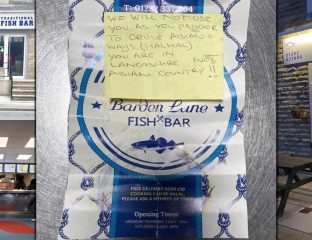 TRADITIONAL
FISH BAR
T: 01282 337704
WE WILL NOT USE
YOU AS YOU PANDER
TO ASIAN
WAYS (HALHAL)
YOU ARE IN
LANCASHIRE NOT
ASIAN COUNTRY !!
Barden Lane
FISH BAR
FREE DELIVERY OVER £20
COOKING CAN BE HALAL
PLEASE ASK A MEMBER OF STAFF
Opening Times: